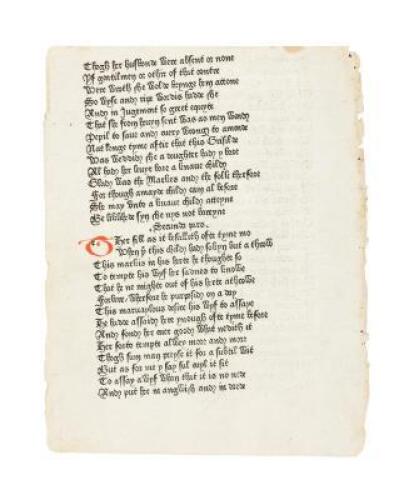 Though her husbonde were absent or none
Yf gentilmen or other of that contre
Were wroth she wolde brynge hem attone
So wyse and ripe wordis hadde she
And in Jugement so greet equyte
That she from heuyn sent was as men wende
Pepil to saue and euery wrong to amende
Nat longe tyme aftir that this Grisilde
Was weddid she a doughter hadde y bore
Al had her leuyr bore a knaue childe
Glad was the Markes and the folk therfore
For though a mayde child cam al before
She may vnto a knaue child atteyne
Be liklihede syn she nys not bareyne
Secunda pars
Ther fill as it befallith ofte tyme mo
Whan þt this child had sokyn but a throw
This markis in his herte thought so
To tempte his wyf her sadnes to knowe
That he ne might out of his herte athrowe
This maruaylous desire his wyf to assaye
He hadde assayde her ynough ofte tyme before
And fonde her euer good what nedith it
Her forto tempte alwey more and more
Though sum men preyse it for a subtil wit
But as for me y say ful euyl it sit
To assay a wyf whan that it is no nede
And put her in anguish and in drede